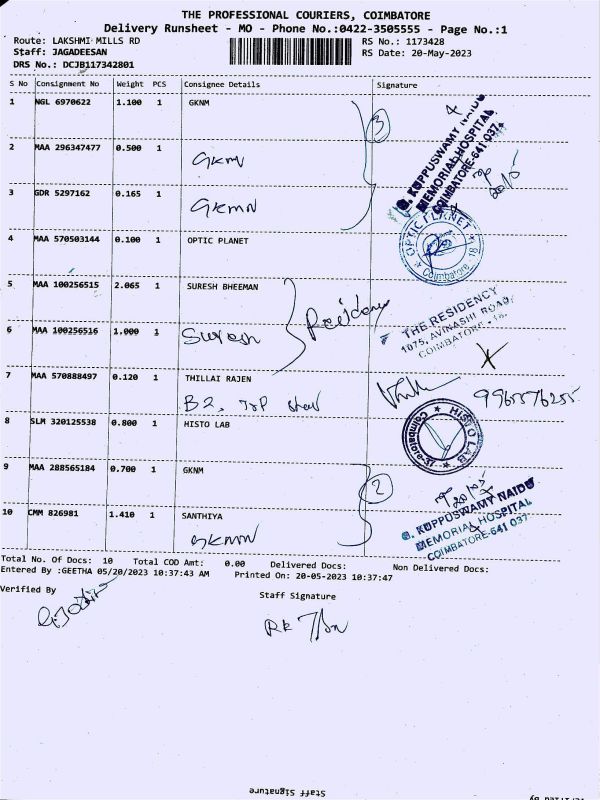 THE PROFESSIONAL COURIERS, COIMBATORE
Delivery Runsheet - MO - Phone No.:0422-3505555 - Page No.:1
Route: LAKSHMI MILLS RD
RS No.: 1173428
Staff: JAGADEESAN
RS Date: 20-May-2023
DRS No.: DCJB117342801
S No Consignment No Weight PCS Consignee Details Signature
1 NGL 6970622 1.100 1 GKNM
3
G. KUPPUSWAMY NAIDU
MEMORIAL HOSPITAL
COIMBATORE-641 037.
2 MAA 296347477 0.500 1
GKMN
3 GDR 5297162 0.165 1
GKMN
4 MAA 570503144 0.100 1 OPTIC PLANET
OPTIC PLANET
Coimbatore - 18
5 MAA 100256515 2.065 1 SURESH BHEEMAN
Residency
THE RESIDENCY
1075, AVINASHI ROAD,
COIMBATORE - 18.
6 MAA 100256516 1.000 1
Suresh
7 MAA 570888497 0.120 1 THILLAI RAJEN
9965576255
8 SLM 320125538 0.800 1 HISTO LAB
HISTO LAB
Coimbatore-37
9 MAA 288565184 0.700 1 GKNM
2
G. KUPPUSWAMY NAIDU
MEMORIAL HOSPITAL
COIMBATORE-641 037.
10 CMM 826981 1.410 1 SANTHIYA
GKMN
Total No. Of Docs: 10 Total COD Amt: 0.00 Delivered Docs: Non Delivered Docs:
Entered By :GEETHA 05/20/2023 10:37:43 AM Printed On: 20-05-2023 10:37:47
Verified By
Staff Signature
Staff Signature